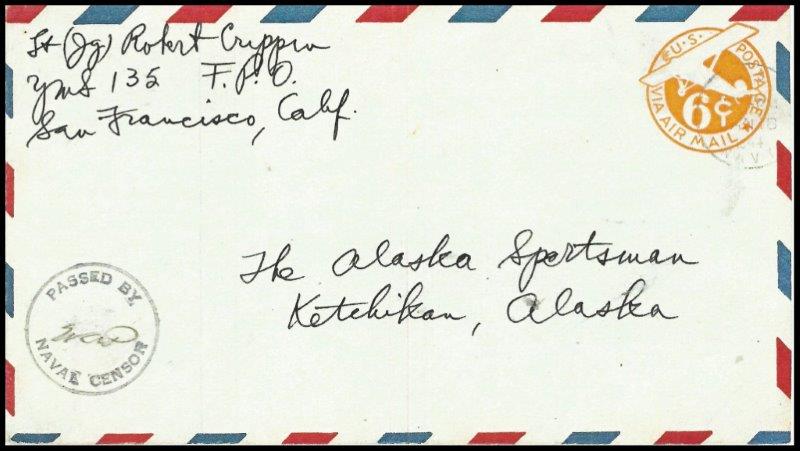 Lt (Jg) Robert Crippin
YMS 135 F.P.O.
San Francisco, Calif.
U.S. POSTAGE
6¢
VIA AIR MAIL
The Alaska Sportsman
Ketchikan, Alaska
PASSED BY
NAVAL CENSOR